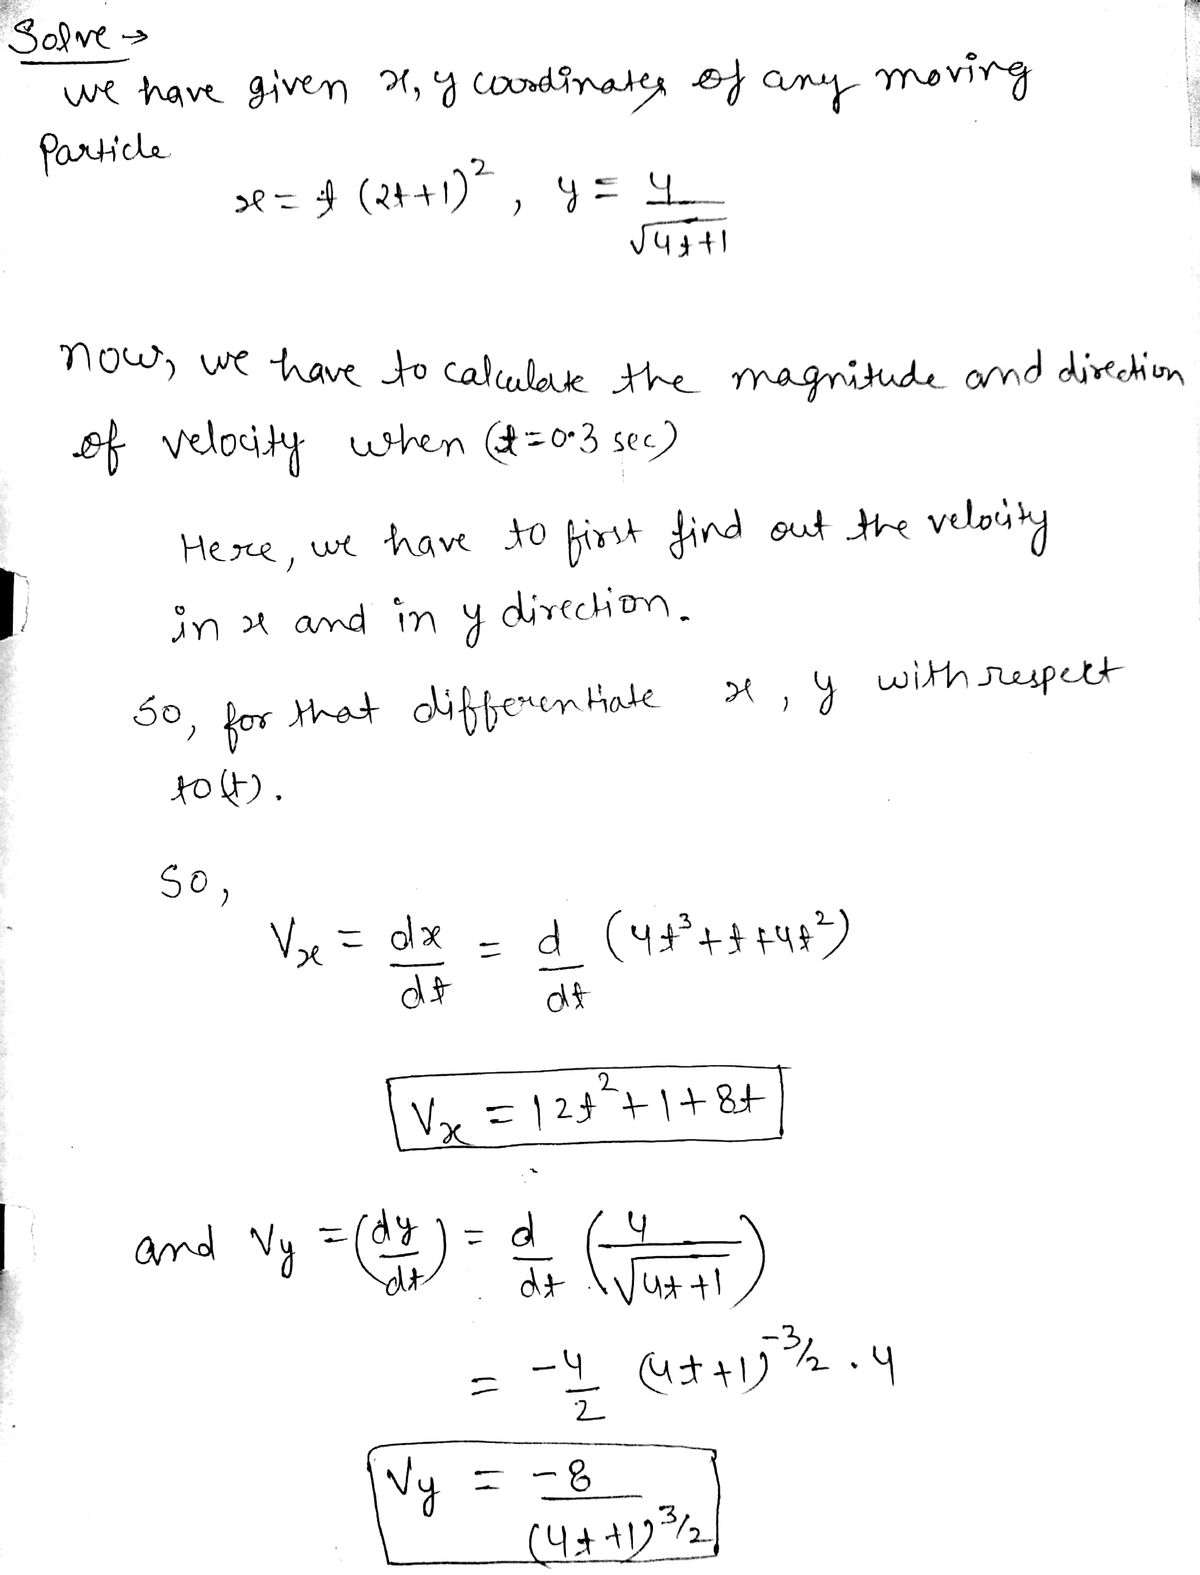 Solve →
we have given x, y coordinates of any moving
Particle
x = t (2t+1)², y = 4/√4t+1
now, we have to calculate the magnitude and direction
of velocity when (t=0.3 sec)
Here, we have to first find out the velocity
in x and in y direction.
So, for that differentiate x, y with respect
to (t).
So,
Vx = dx/dt = d/dt (4t³+t+4t²)
Vx = 12t²+1+8t
and Vy = (dy/dt) = d/dt (4/√4t+1)
= -4/2 (4t+1)^-3/2 . 4
Vy = -8/(4t+1)^3/2